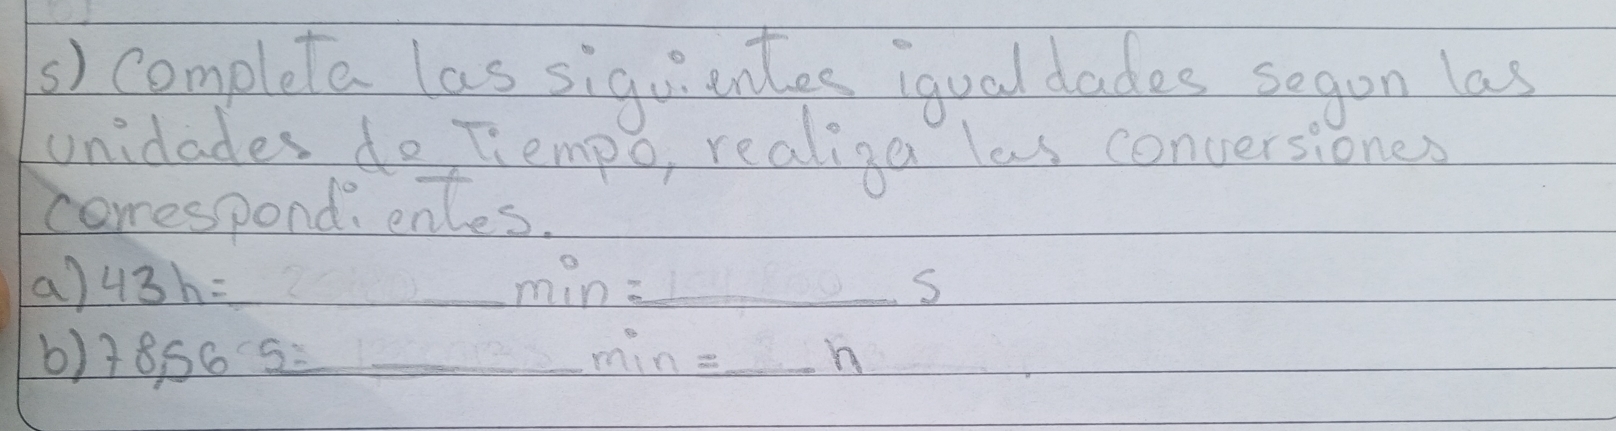 s) Completa las siguientes igualdades segun las
unidades de Tiempo, realiza las conversiones
correspondientes.
a) 43h= ________ min = ________ s
b) 78,56 s= ________ min = ____ h